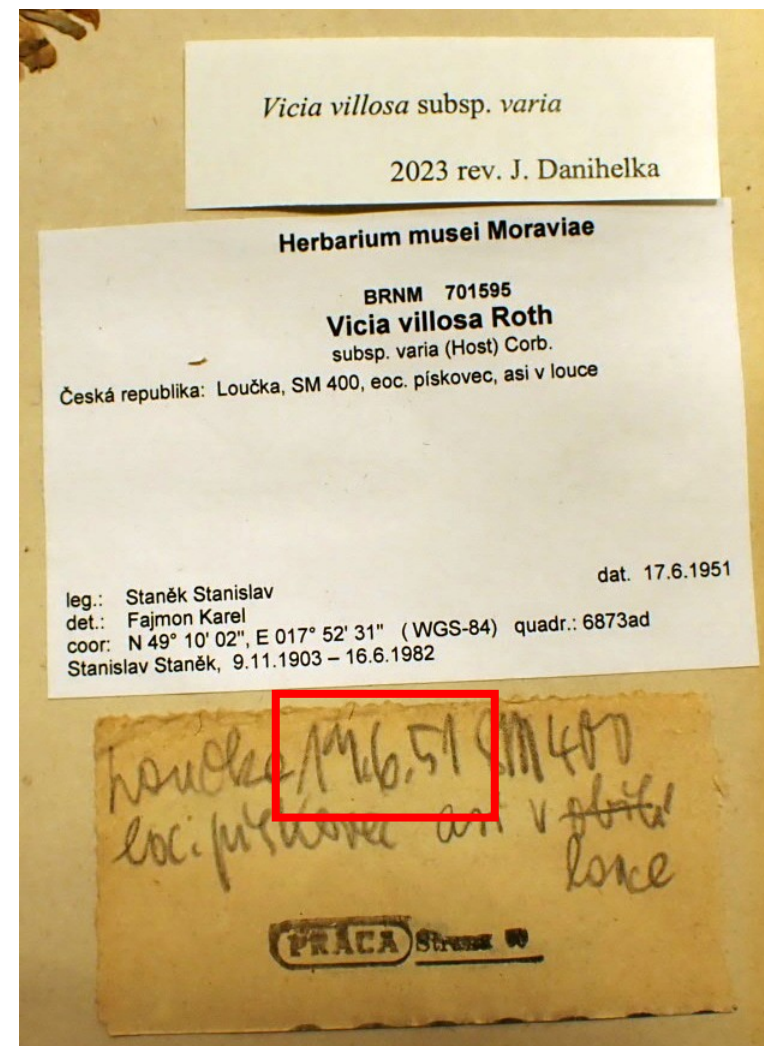 Vicia villosa subsp. varia
2023 rev. J. Danihelka
Herbarium musei Moraviae
BRNM 701595
Vicia villosa Roth
subsp. varia (Host) Corb.
Česká republika: Loučka, SM 400, eoc. pískovec, asi v louce
dat. 17.6.1951
leg.: Staněk Stanislav
det.: Fajmon Karel
coor: N 49° 10' 02", E 017° 52' 31" (WGS-84) quadr.: 6873ad
Stanislav Staněk, 9.11.1903 – 16.6.1982
Loučka 17.6.51 SM 400
eoc. pískovec asi v obilí
louce
PRÁCA Strana